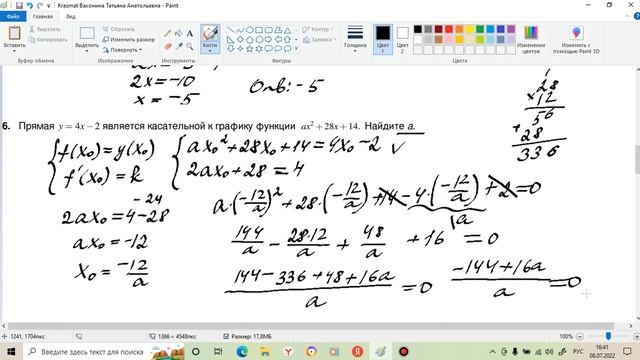 Krasmat Вахонина Татьяна Анатольевна - Paint
Файл Главная Вид
Вставить
Выделить
Обрезать
Изменить размер
Повернуть
Кисти
Контур
Заливка
Толщина
Цвет 1
Цвет 2
Изменение цветов
Изменить с помощью Paint 3D
Буфер обмена Изображение Инструменты Фигуры Цвета
2x = -10
x = -5
Отв: -5
28
×12
56
+28
336
6. Прямая y = 4x − 2 является касательной к графику функции ax² + 28x + 14. Найдите a.
{ f(x₀) = y(x₀)
f'(x₀) = k
{ ax₀² + 28x₀ + 14 = 4x₀ - 2 ✓
2ax₀ + 28 = 4
-24
2ax₀ = 4 - 28
ax₀ = -12
x₀ = -12/a
a·(-12/a)² + 28·(-12/a) + 14 - 4·(-12/a) + 2 = 0
144/a - 28·12/a + 48/a + 16 = 0
(144 - 336 + 48 + 16a)/a = 0
(-144 + 16a)/a = 0
1241, 1704пкс
1366 × 4548пкс
Размер: 17,8МБ
100%
Введите здесь текст для поиска
РУС
16:41
08.07.2022